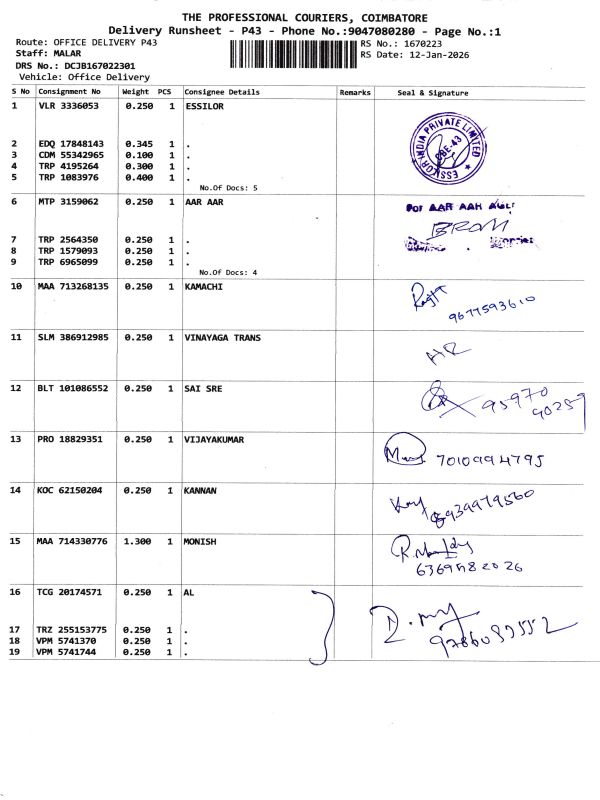 THE PROFESSIONAL COURIERS, COIMBATORE
Delivery Runsheet - P43 - Phone No.:9047080280 - Page No.:1
Route: OFFICE DELIVERY P43
RS No.: 1670223
Staff: MALAR
RS Date: 12-Jan-2026
DRS No.: DCJB167022301
Vehicle: Office Delivery
S No Consignment No Weight PCS Consignee Details Remarks Seal & Signature
1 VLR 3336053 0.250 1 ESSILOR
INDIA PRIVATE LIMITED
CBE-43
2 EDQ 17848143 0.345 1 .
3 CDM 55342965 0.100 1 .
4 TRP 4195264 0.300 1 .
5 TRP 1083976 0.400 1 .
No.Of Docs: 5
6 MTP 3159062 0.250 1 AAR AAR
For AAR AAR
7 TRP 2564350 0.250 1 .
8 TRP 1579093 0.250 1 .
9 TRP 6965099 0.250 1 .
No.Of Docs: 4
10 MAA 713268135 0.250 1 KAMACHI
9677593610
11 SLM 386912985 0.250 1 VINAYAGA TRANS
12 BLT 101086552 0.250 1 SAI SRE
95970
90259
13 PRO 18829351 0.250 1 VIJAYAKUMAR
7010994795
14 KOC 62150204 0.250 1 KANNAN
8939979560
15 MAA 714330776 1.300 1 MONISH
16 TCG 20174571 0.250 1 AL
17 TRZ 255153775 0.250 1 .
18 VPM 5741370 0.250 1 .
19 VPM 5741744 0.250 1 .